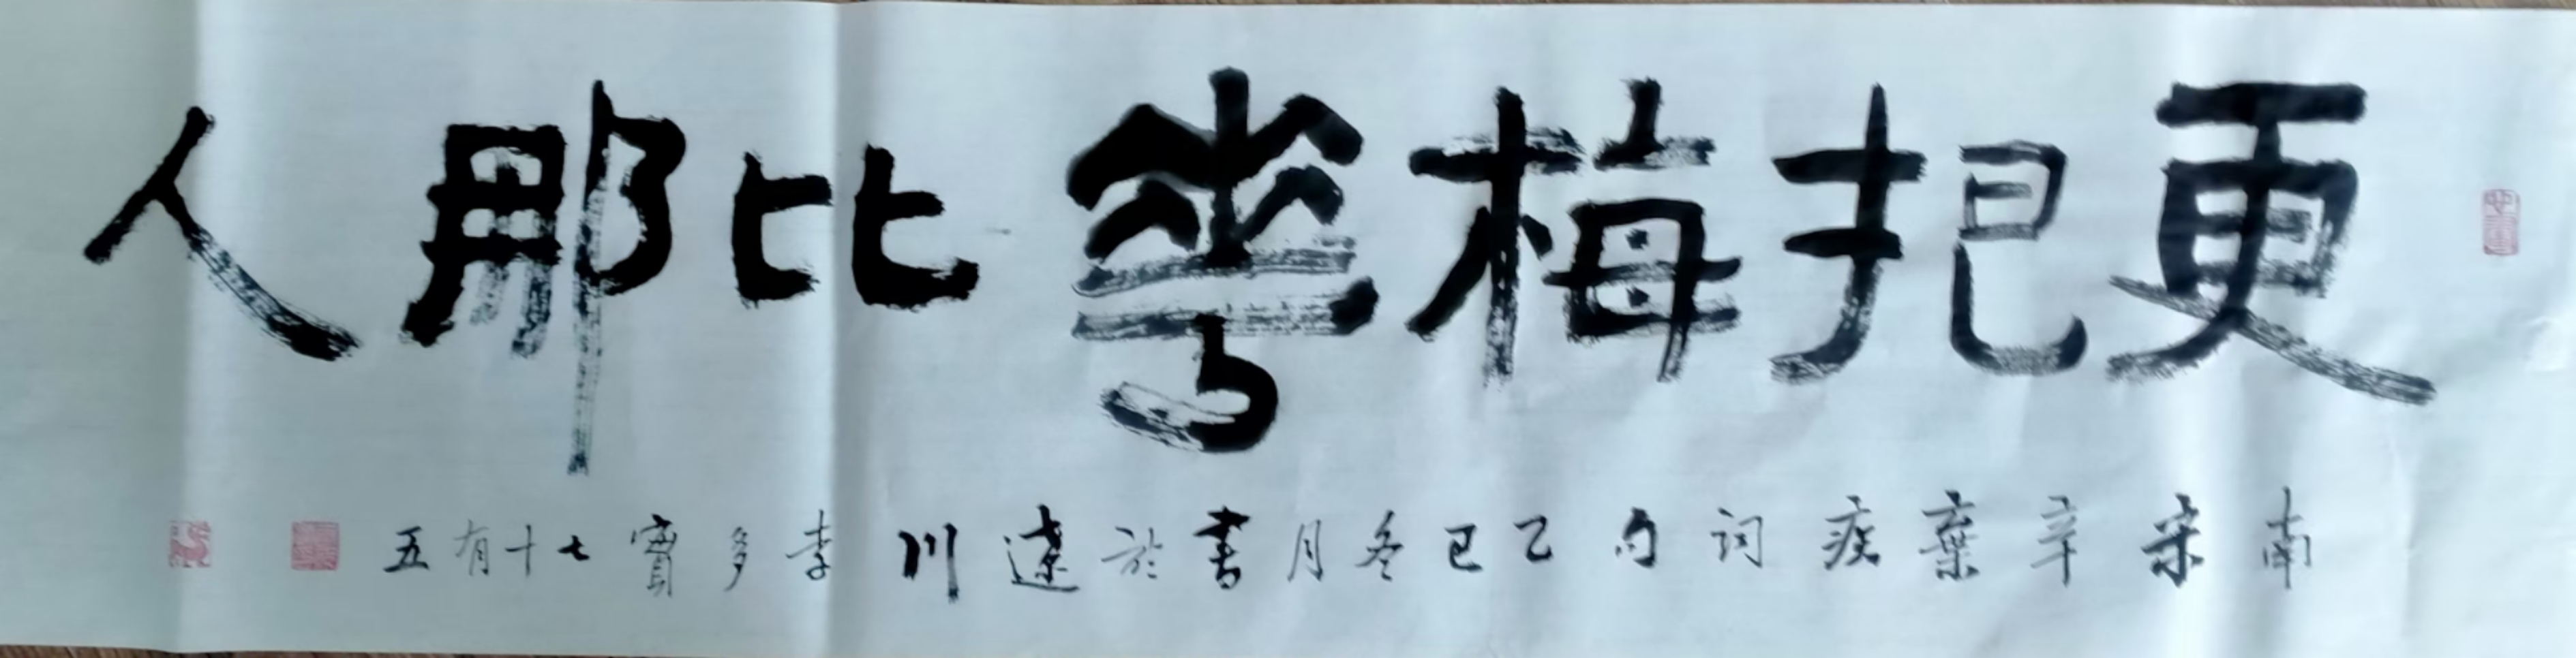 更把梅花比那人
南宋辛棄疾词句乙巳冬月書於遼川李多寶七十有五